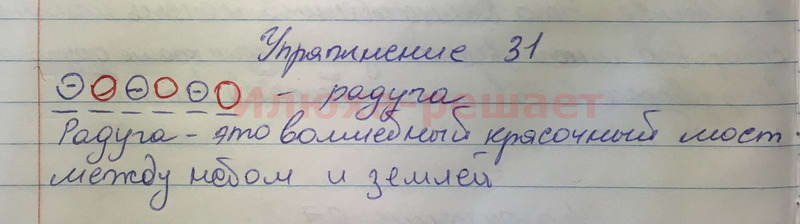 Упражнение 31
- радуга
Илюха-решает
Радуга - это волшебный красочный мост
между небом и землей